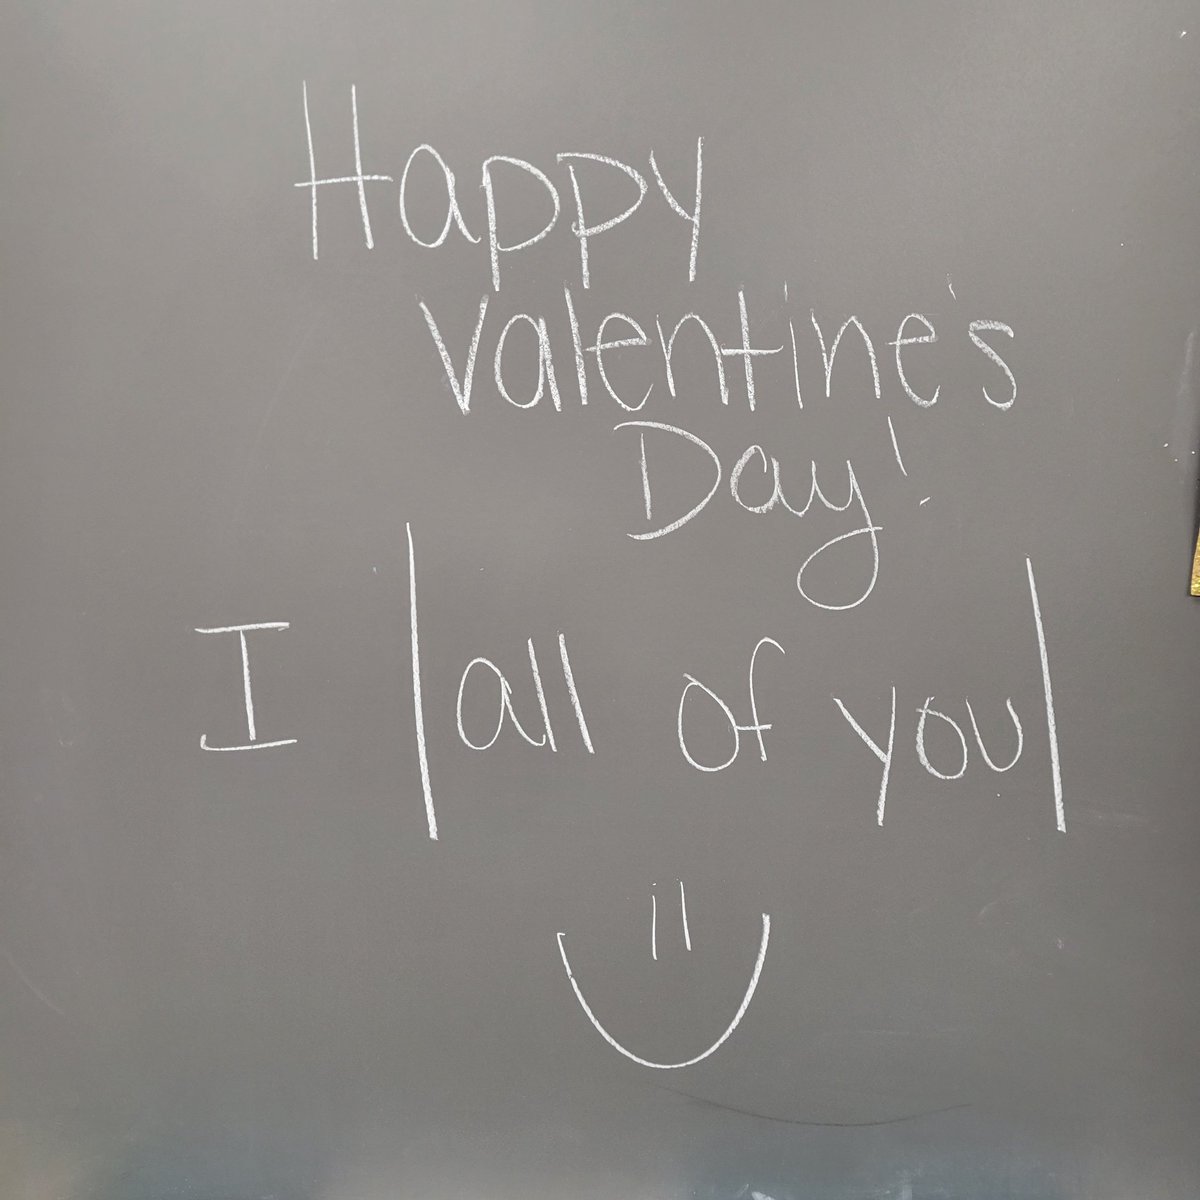 Happy
Valentine's
Day!
I |all of you|